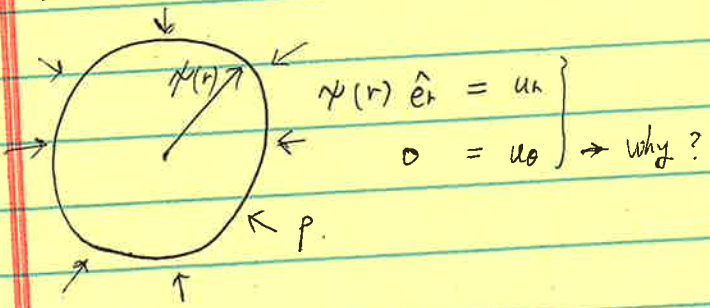 ψ(r)
ψ(r) êr = ur
0 = uθ } → why?
p.